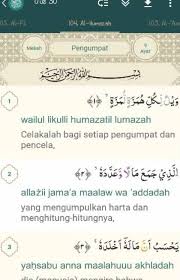 104. Al-Humazah
Mekah
Pengumpat
9
Ayat
بِسْمِ اللَّهِ الرَّحْمَٰنِ الرَّحِيمِ
1
وَيْلٌ لِكُلِّ هُمَزَةٍ لُمَزَةٍ ﴿١﴾
wailul likulli humazatil lumazah
Celakalah bagi setiap pengumpat dan
pencela,
2
الَّذِي جَمَعَ مَالًا وَعَدَّدَهُ ﴿٢﴾
allażii jama'a maalaw wa 'addadah
yang mengumpulkan harta dan
menghitung-hitungnya,
3
يَحْسَبُ أَنَّ مَالَهُ أَخْلَدَهُ ﴿٣﴾
yaḥsabu anna maalahuu akhladah